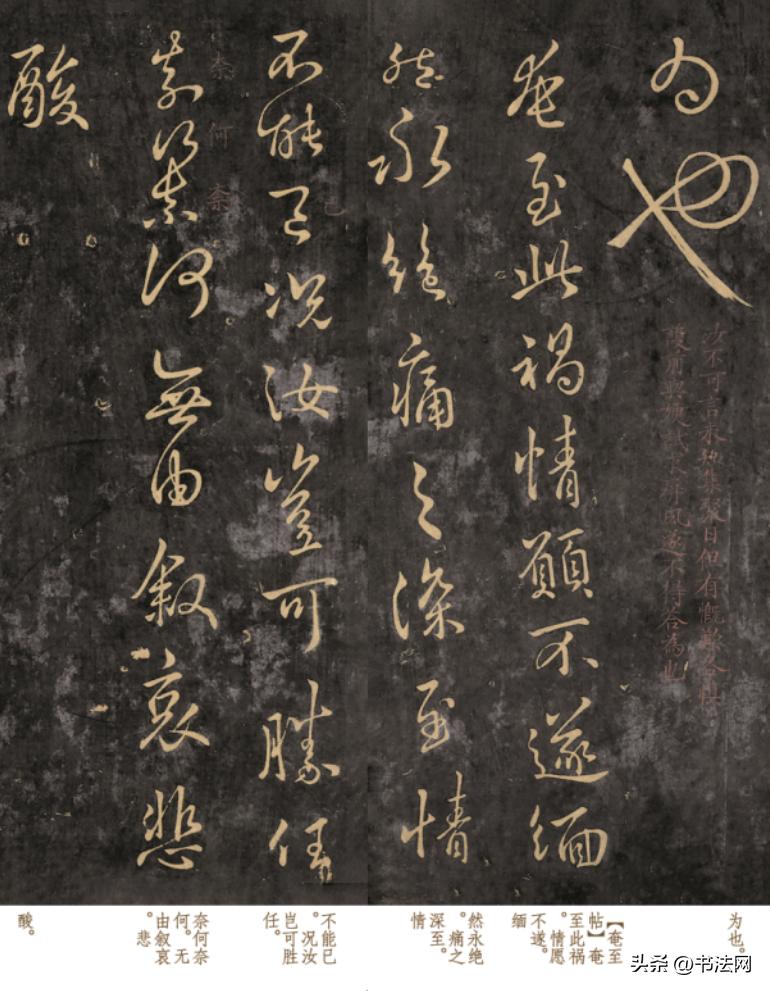 为也
奄至此祸情愿不遂缅
然永绝痛之深至情
不能已况汝岂可胜任
奈何奈何無由叙哀悲
酸
奈何奈
已
为也。
【奄至
帖】奄
至此祸
。情愿
不遂。
缅
然永绝
。痛之
深至。
情
不能已
。况汝
岂可胜
任。
奈何奈
何。无
由叙哀
。悲
酸。
头条 @书法网